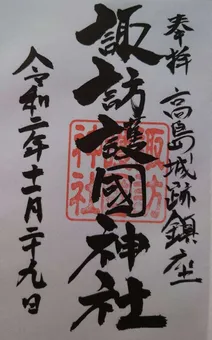 奉拝 高島城跡鎮座
諏訪護國神社
諏訪
神社
令和二年十一月二十九日